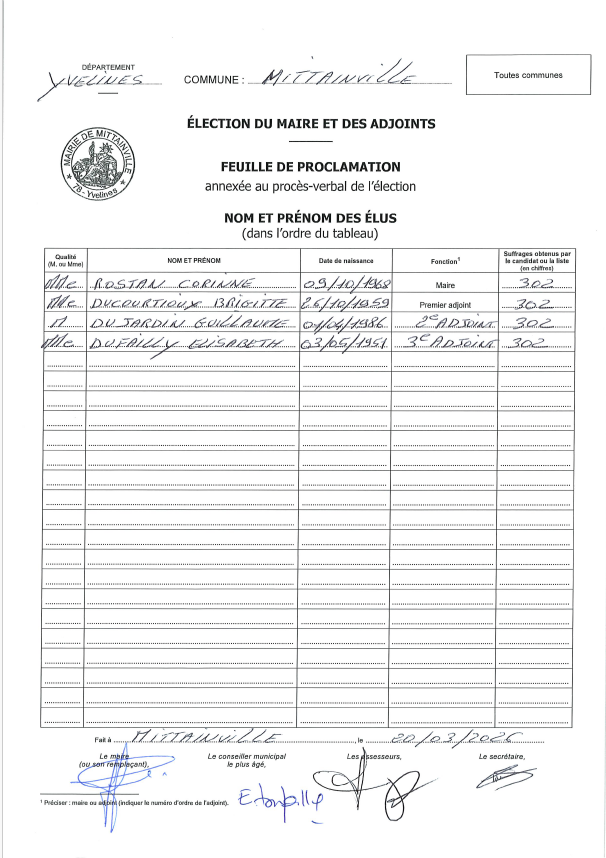 DÉPARTEMENT
YVELINES
COMMUNE : MITTAINVILLE
Toutes communes
ÉLECTION DU MAIRE ET DES ADJOINTS
MAIRIE DE MITTAINVILLE
78 - Yvelines
FEUILLE DE PROCLAMATION
annexée au procès-verbal de l'élection
NOM ET PRÉNOM DES ÉLUS
(dans l'ordre du tableau)
Qualité (M. ou Mme) NOM ET PRÉNOM Date de naissance Fonction¹ Suffrages obtenus par le candidat ou la liste (en chiffres)
Mme ROSTAN CORINNE 09/10/1968 Maire 302
Mme DUCOURTIOUX BRIGITTE 26/10/1959 Premier adjoint 302
M DUJARDIN GUILLAUME 01/04/1986 2e ADJOINT 302
Mme DUFAILLY ELISABETH 03/05/1951 3e ADJOINT 302
Fait à MITTAINVILLE, le 20/03/2026
Le maire (ou son remplaçant), Le conseiller municipal le plus âgé, Les assesseurs, Le secrétaire,
¹ Préciser : maire ou adjoint (indiquer le numéro d'ordre de l'adjoint).